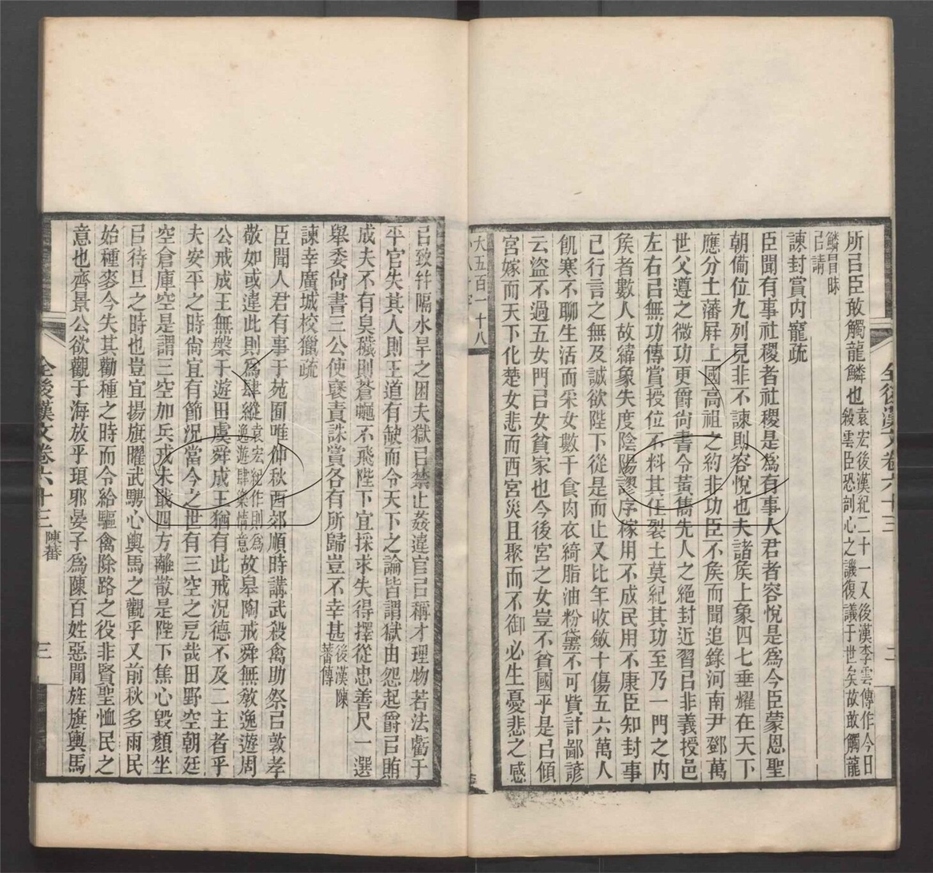 所㠯臣敢觸龍鱗也袁宏後漢紀二十一又後漢李雲傳作今日殺雲臣恐剖心之譏復議于世矣故敢觸龍
鱗冒昧㠯請
諫封賞內寵疏
臣聞有事社稷者社稷是爲有事人君者容悅是爲今臣蒙恩聖
朝備位九列見非不諫則容悅也夫諸矦上象四七垂耀在天下
應分土藩屛上國高祖之約非功臣不矦而聞追錄河南尹鄧萬
世父遵之微功更爵尙書令黃儁先人之絕封近習㠯非義授邑
左右㠯無功傳賞授位不料其任裂土莫紀其功至乃一門之內
矦者數人故緯象失度陰陽謬序稼用不成民用不康臣知封事
已行言之無及誠欲陛下從是而止又比年收斂十傷五六萬人
飢寒不聊生活而采女數千食肉衣綺脂油粉黛不可貲計鄙諺
云盜不過五女門㠯女貧家也今後宮之女豈不貧國乎是㠯傾
宮嫁而天下化楚女悲而西宮災且聚而不御必生憂悲之感
大五百一十八
全後漢文卷六十三
二
㠯致幷隔水旱之困夫獄㠯禁止姦違官㠯稱才理物若法虧于
平官失其人則王道有缺而令天下之論皆謂獄由怨起爵㠯賄
成夫不有臭穢則蒼蠅不飛陛下宜採求失得擇從忠善尺一選
舉委尙書三公使襃責誅賞各有所歸豈不幸甚後漢陳蕃傳
諫幸廣城校獵疏
臣聞人君有事于苑囿唯仲秋西郊順時講武殺禽助祭㠯敦孝
敬如或違此則爲肆縱袁宏紀作則爲逸遊肆樂情意故皋陶戒舜無敎逸遊周
公戒成王無槃于遊田虞舜成王猶有此戒況德不及二主者乎
夫安平之時尙宜有節況當今之世有三空之戹哉田野空朝廷
空倉庫空是謂三空加兵戎未戢四方離散是陛下焦心毀顏坐
㠯待旦之時也豈宜揚旗曜武騁心輿馬之觀乎又前秋多雨民
始種麥今失其勸種之時而令給驅禽除路之役非賢聖恤民之
意也齊景公欲觀于海放乎琅邪晏子爲陳百姓惡聞旌旗輿馬
全後漢文卷六十三 陳蕃
三